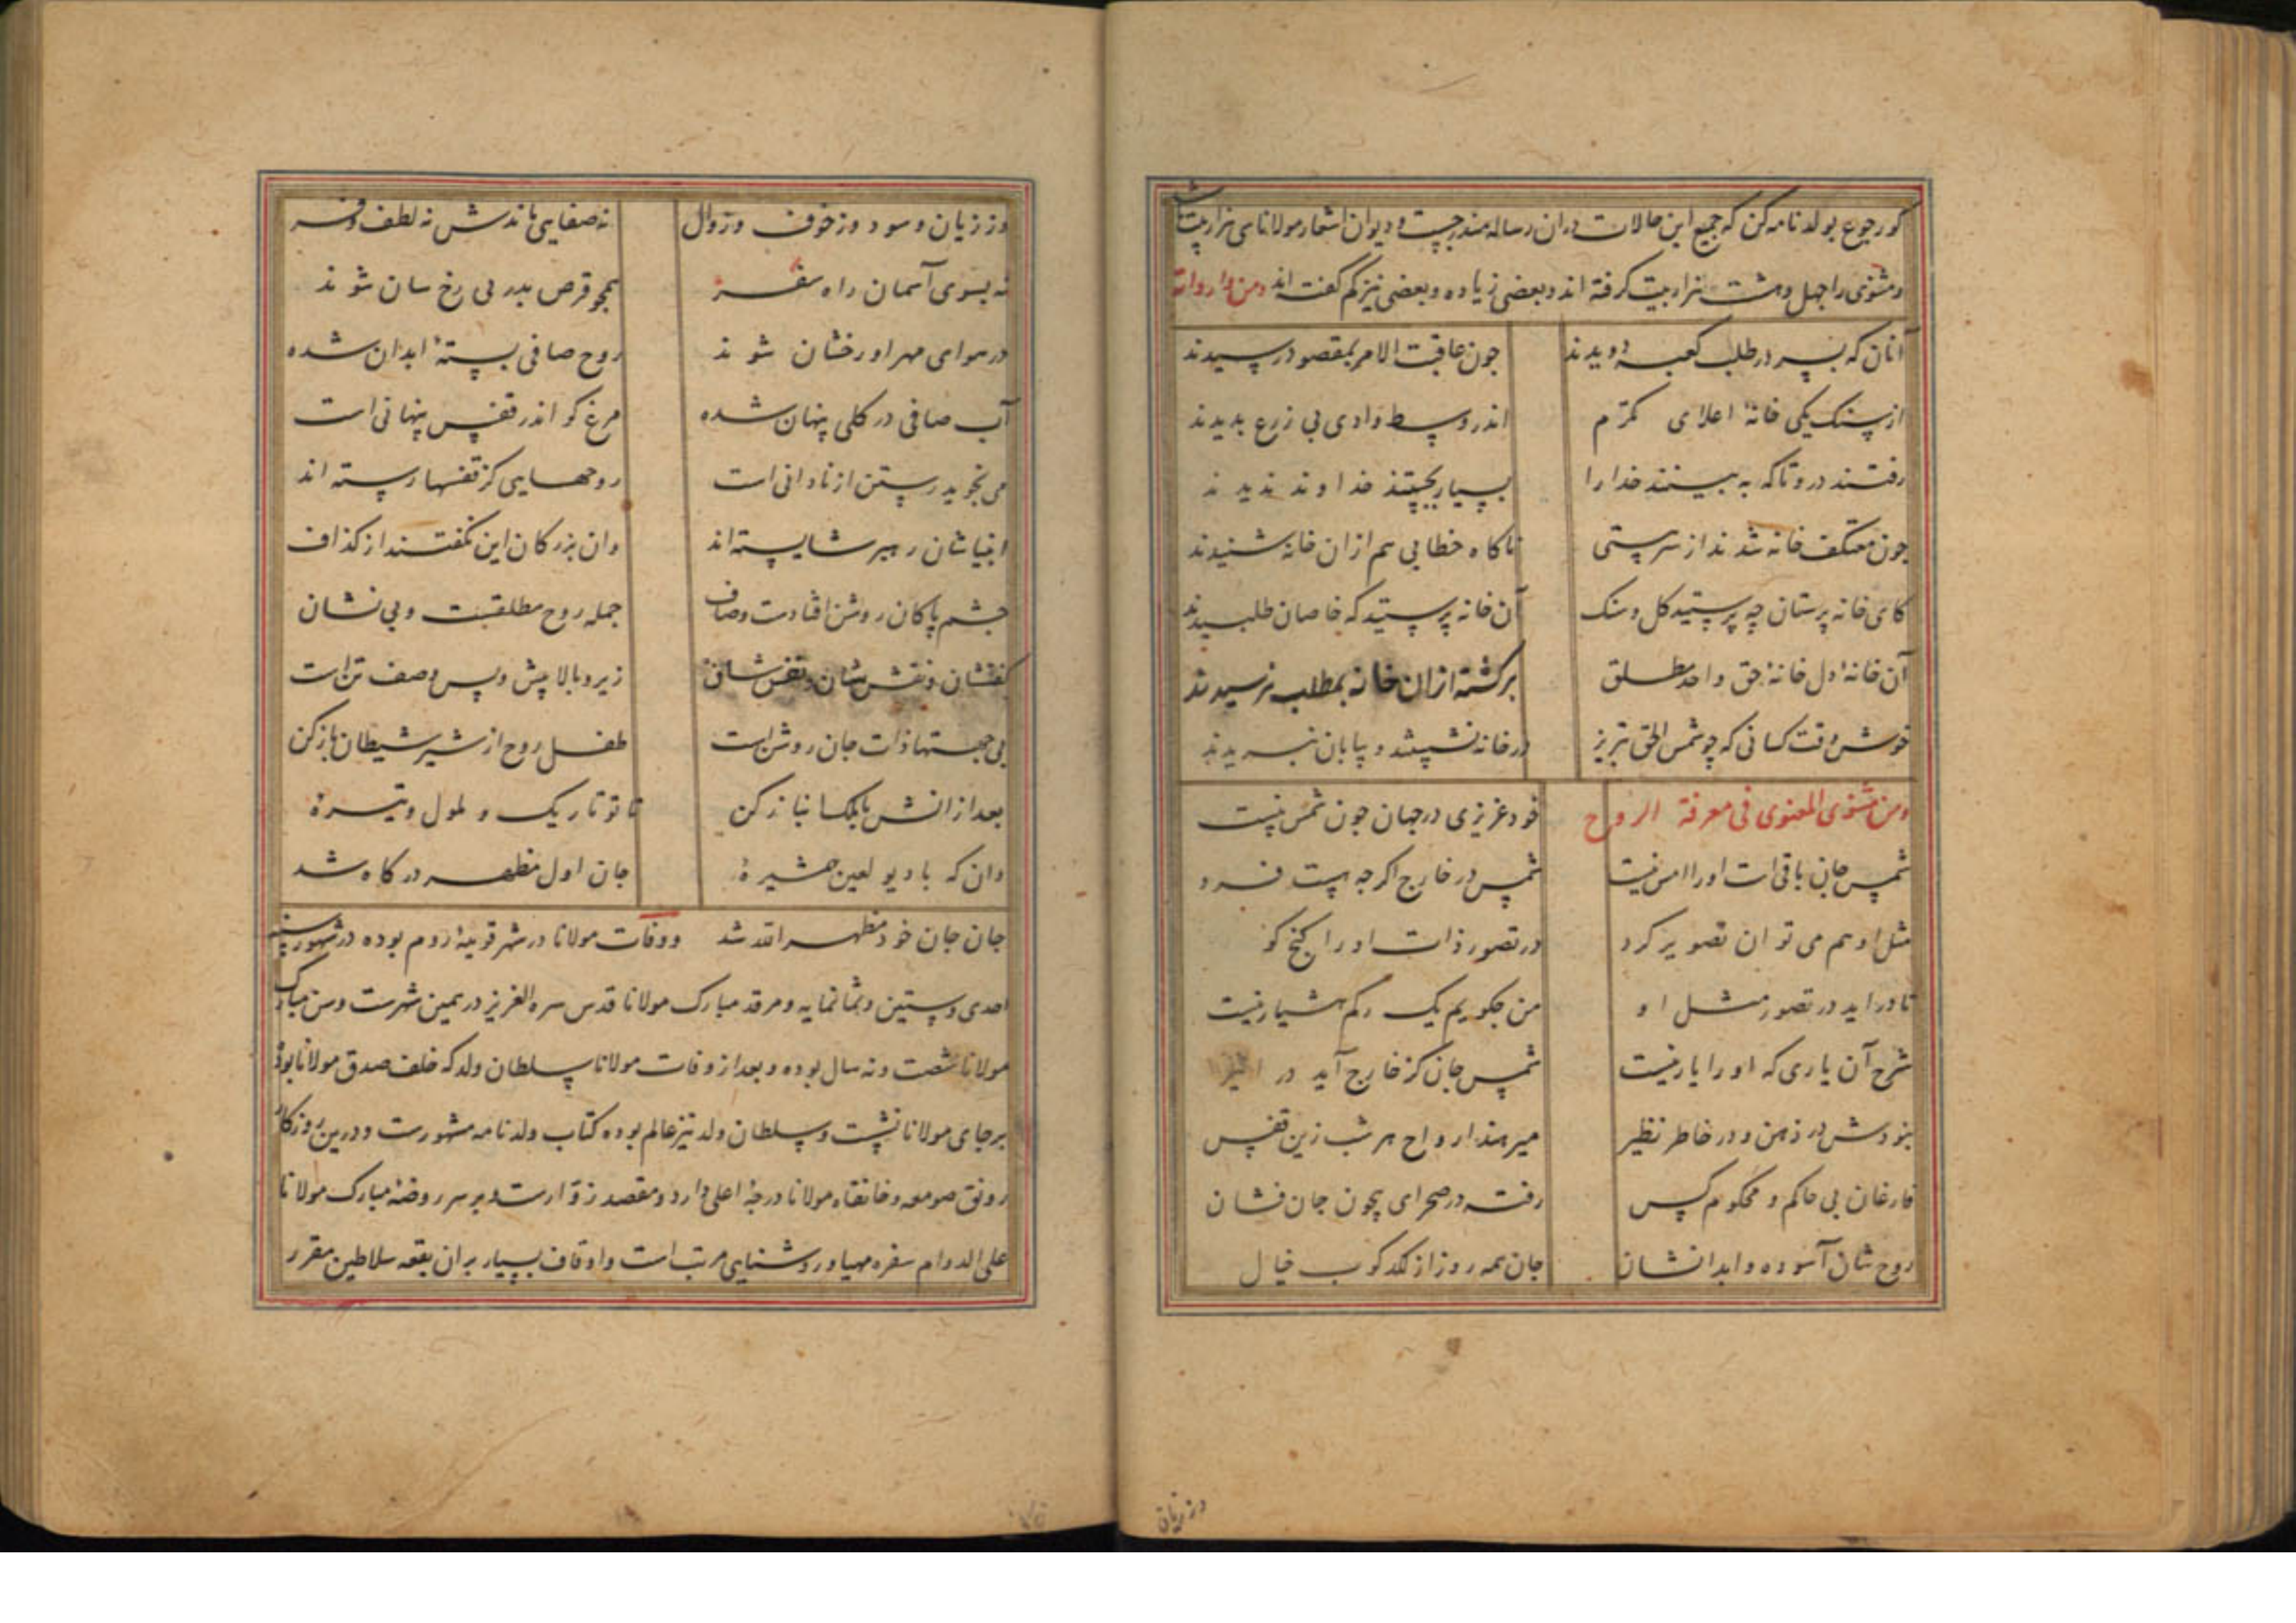 کو رجوع بولدنامه کن که جمیع این حالات دران رساله مندرجست و دیوان اشعار مولانا سی هزار بیت
و مثنوی را چهل و هشت هزار بیت گرفته اند و بعضی زیاده و بعضی نیز کم گفته اند ومن
آنان که بسر در طلب کعبه دویدند چون عاقبت الامر بمقصود رسیدند
از سنک یکی خانهٔ اعلای مکرم اندر وسط وادی بی زرع بدیدند
رفتند درو تا که به بینند خدا را بسیار بجستند خدا و ندیدند
چون معتکف خانه شدند از سر پستی ناکاه خطابی هم ازان خانه شنیدند
کای خانه پرستان چه پرستید کل و سنک آن خانه پرستید که خاصان طلبیدند
آن خانهٔ دل خانهٔ حق واحد مطلق برکشته ازان خانه بمطلب نرسیدند
خوش وقت کسانی که چو شمس الحق تبریز در خانه نشستند و بیابان نبریدند
ومن مثنوی المعنوی فی معرفة الروح خود غریزی در جهان چون شمس نیست
شمس جان باقی است او را امس نیست شمس در خارج اکرچه هست فرد
مثل او هم می توان تصویر کرد در تصور ذات او را کنج کو
تا دراید در تصور مثل او من چکویم یک رکم هشیار نیست
شرح آن یاری که او را یار نیست شمس جان کز خارج آید در اثیر
نبودش در ذهن و در خاطر نظیر میرهند ارواح هر شب زین قفس
فارغان بی حاکم و محکوم کس رفته در صحرای بیچون جان فشان
روح شان آسوده و ابدانشان جان همه روز از لکدکوب خیال
وز زیان
وز زیان و سود و وز خوف و زوال نه صفایی ماندش نه لطف و فر
نه بسوی آسمان راه سفر همچو قرص بدر بی رخ سان شوند
در هوای مهر او رخشان شوند روح صافی بستهٔ ابدان شده
آب صافی در کلی پنهان شده مرغ کو اندر قفس پنهانی است
می نجوید رستن از نادانی است روحهایی کز قفسها رسته اند
انبیاشان رهبر شایسته اند وان بزرکان این نکفتند از کذاف
جشم پاکان روشن افتادست وصاف جمله روح مطلقست و بی نشان
کفتشان و نقش شان و نفس شان زیر و بالا پیش و پس وصف تن است
بی جهتها ذات جان روشن است طفل روح از شیر شیطان باز کن
بعد ازانش با ملک انباز کن تا تو تاریک و ملول و تیرهٔ
دان که با دیو لعین همشیرهٔ جان اول مظهر درکاه شد
جان جان خود مظهر الله شد و وفات مولانا در شهر قونیهٔ روم بوده در شهور سنه
احدی و ستین و ثمانمایه و مرقد مبارک مولانا قدس سره العزیز در همین شهرست و سن مبارک
مولانا شصت و نه سال بوده و بعد از وفات مولانا سلطان ولد که خلف صدق مولانا بود
برجای مولانا نشست و سلطان ولد نیز عالم بوده کتاب ولدنامه مشهورست و درین روزکار
رونق صومعه و خانقاه مولانا درجهٔ اعلی دارد و مقصد زوارست و بر سر روضهٔ مبارک مولانا
علی الدوام سفره مهیا و روشنایی مرتب است و اوقاف بسیار بران بقعه سلاطین مقرر